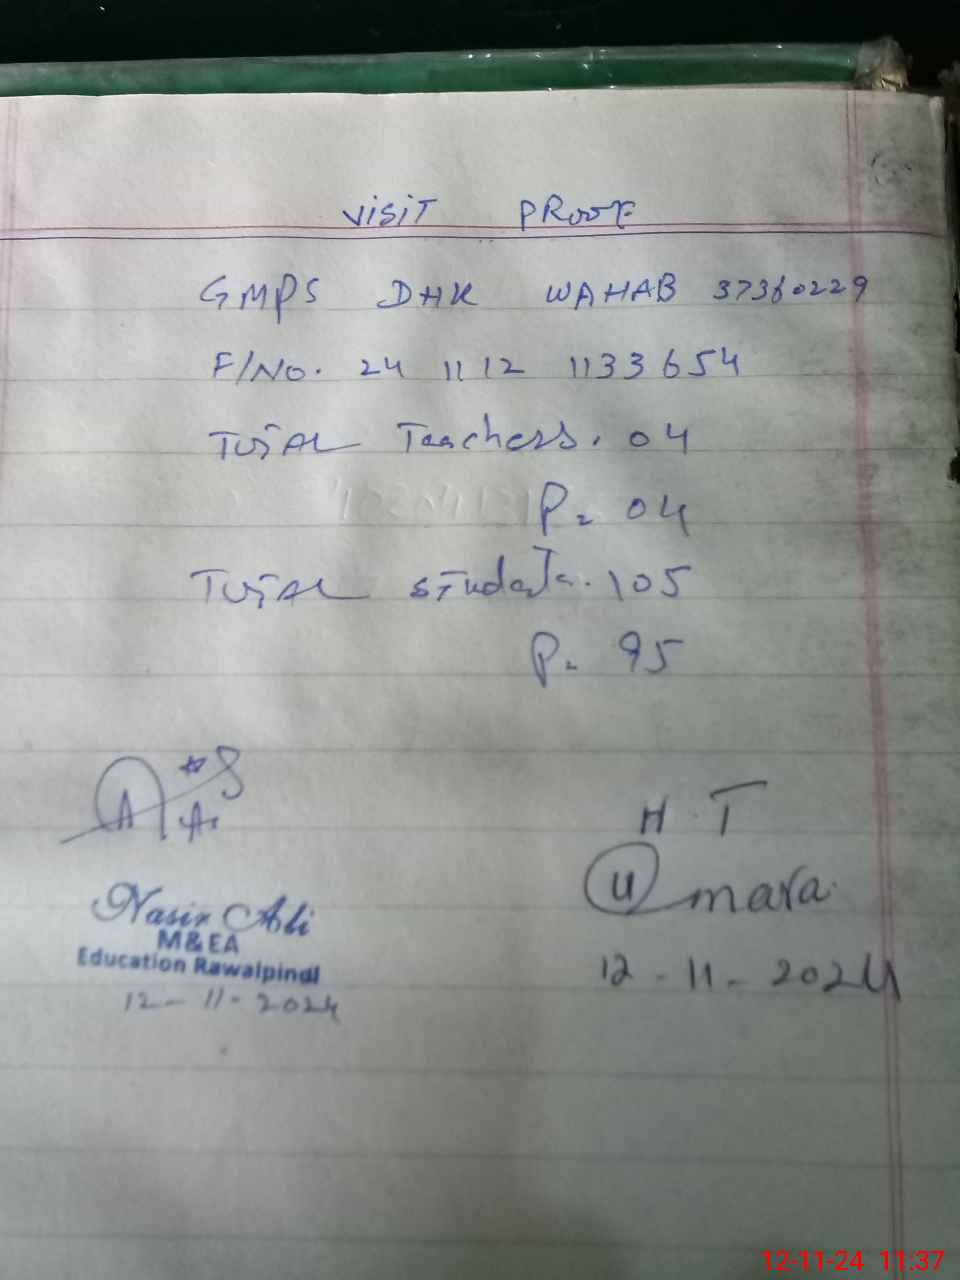 VISIT PROOF
GMPS DHK WAHAB 37360229
F/No. 24 11 12 1133654
TOTAL Teachers. 04
P= 04
TOTAL Students. 105
P= 95
H.T
Umara
12-11-2024
Nasir Ali
M&EA
Education Rawalpindi
12-11-2024
12-11-24 11:37